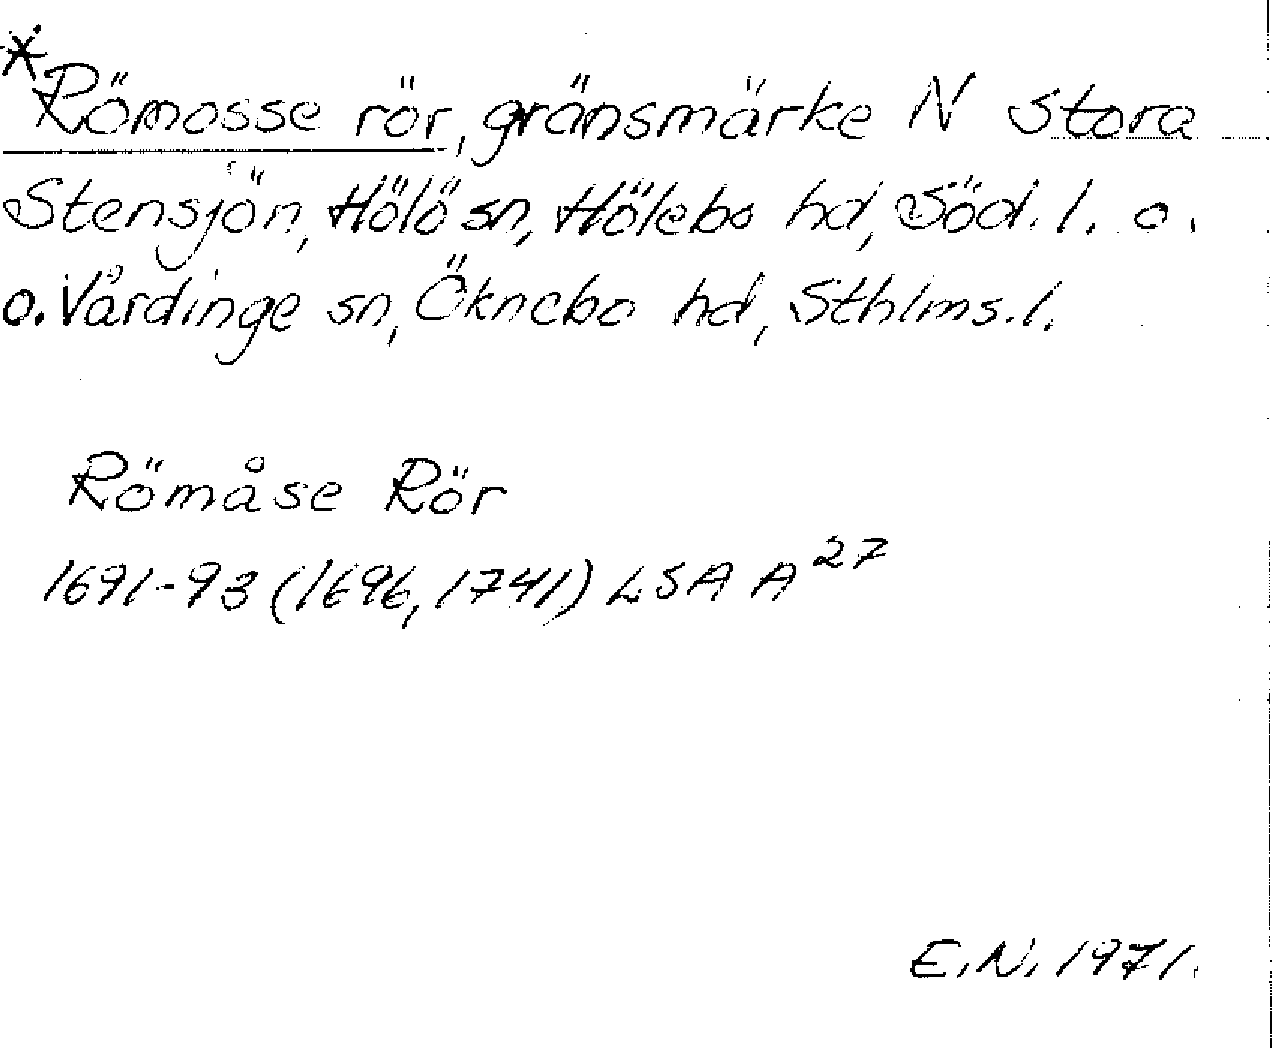 *Römosse rör, gränsmärke N Stora
Stensjön, Hölö sn, Hölebo hd, Söd. l. o.
o. Vårdinge sn, Öknebo hd, Sthlms. l.
Römåse Rör
1691-93 (1696, 1741) LSA A 27
E.N. 1971.